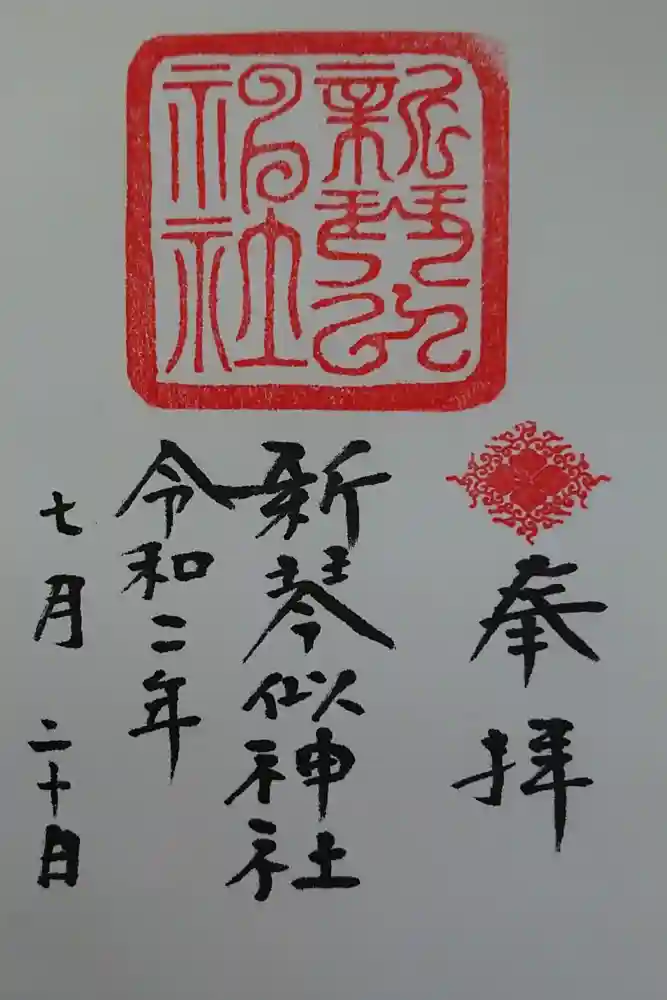 新琴似
神社
奉拝
新琴似神社
令和二年
七月 二十日